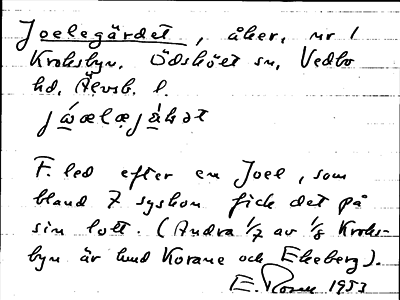 Joelegärdet, åker, nr 1
Kroksbyn, Ödskölt sn, Vedbo
hd, Älvsb. l.
F. led efter en Joel, som
bland 7 syskon fick det på
sin lott. (Andra 1/7 av 1/8 Kroks-
byn är hmd Korane och Ekeberg).
E. Rosen 1953